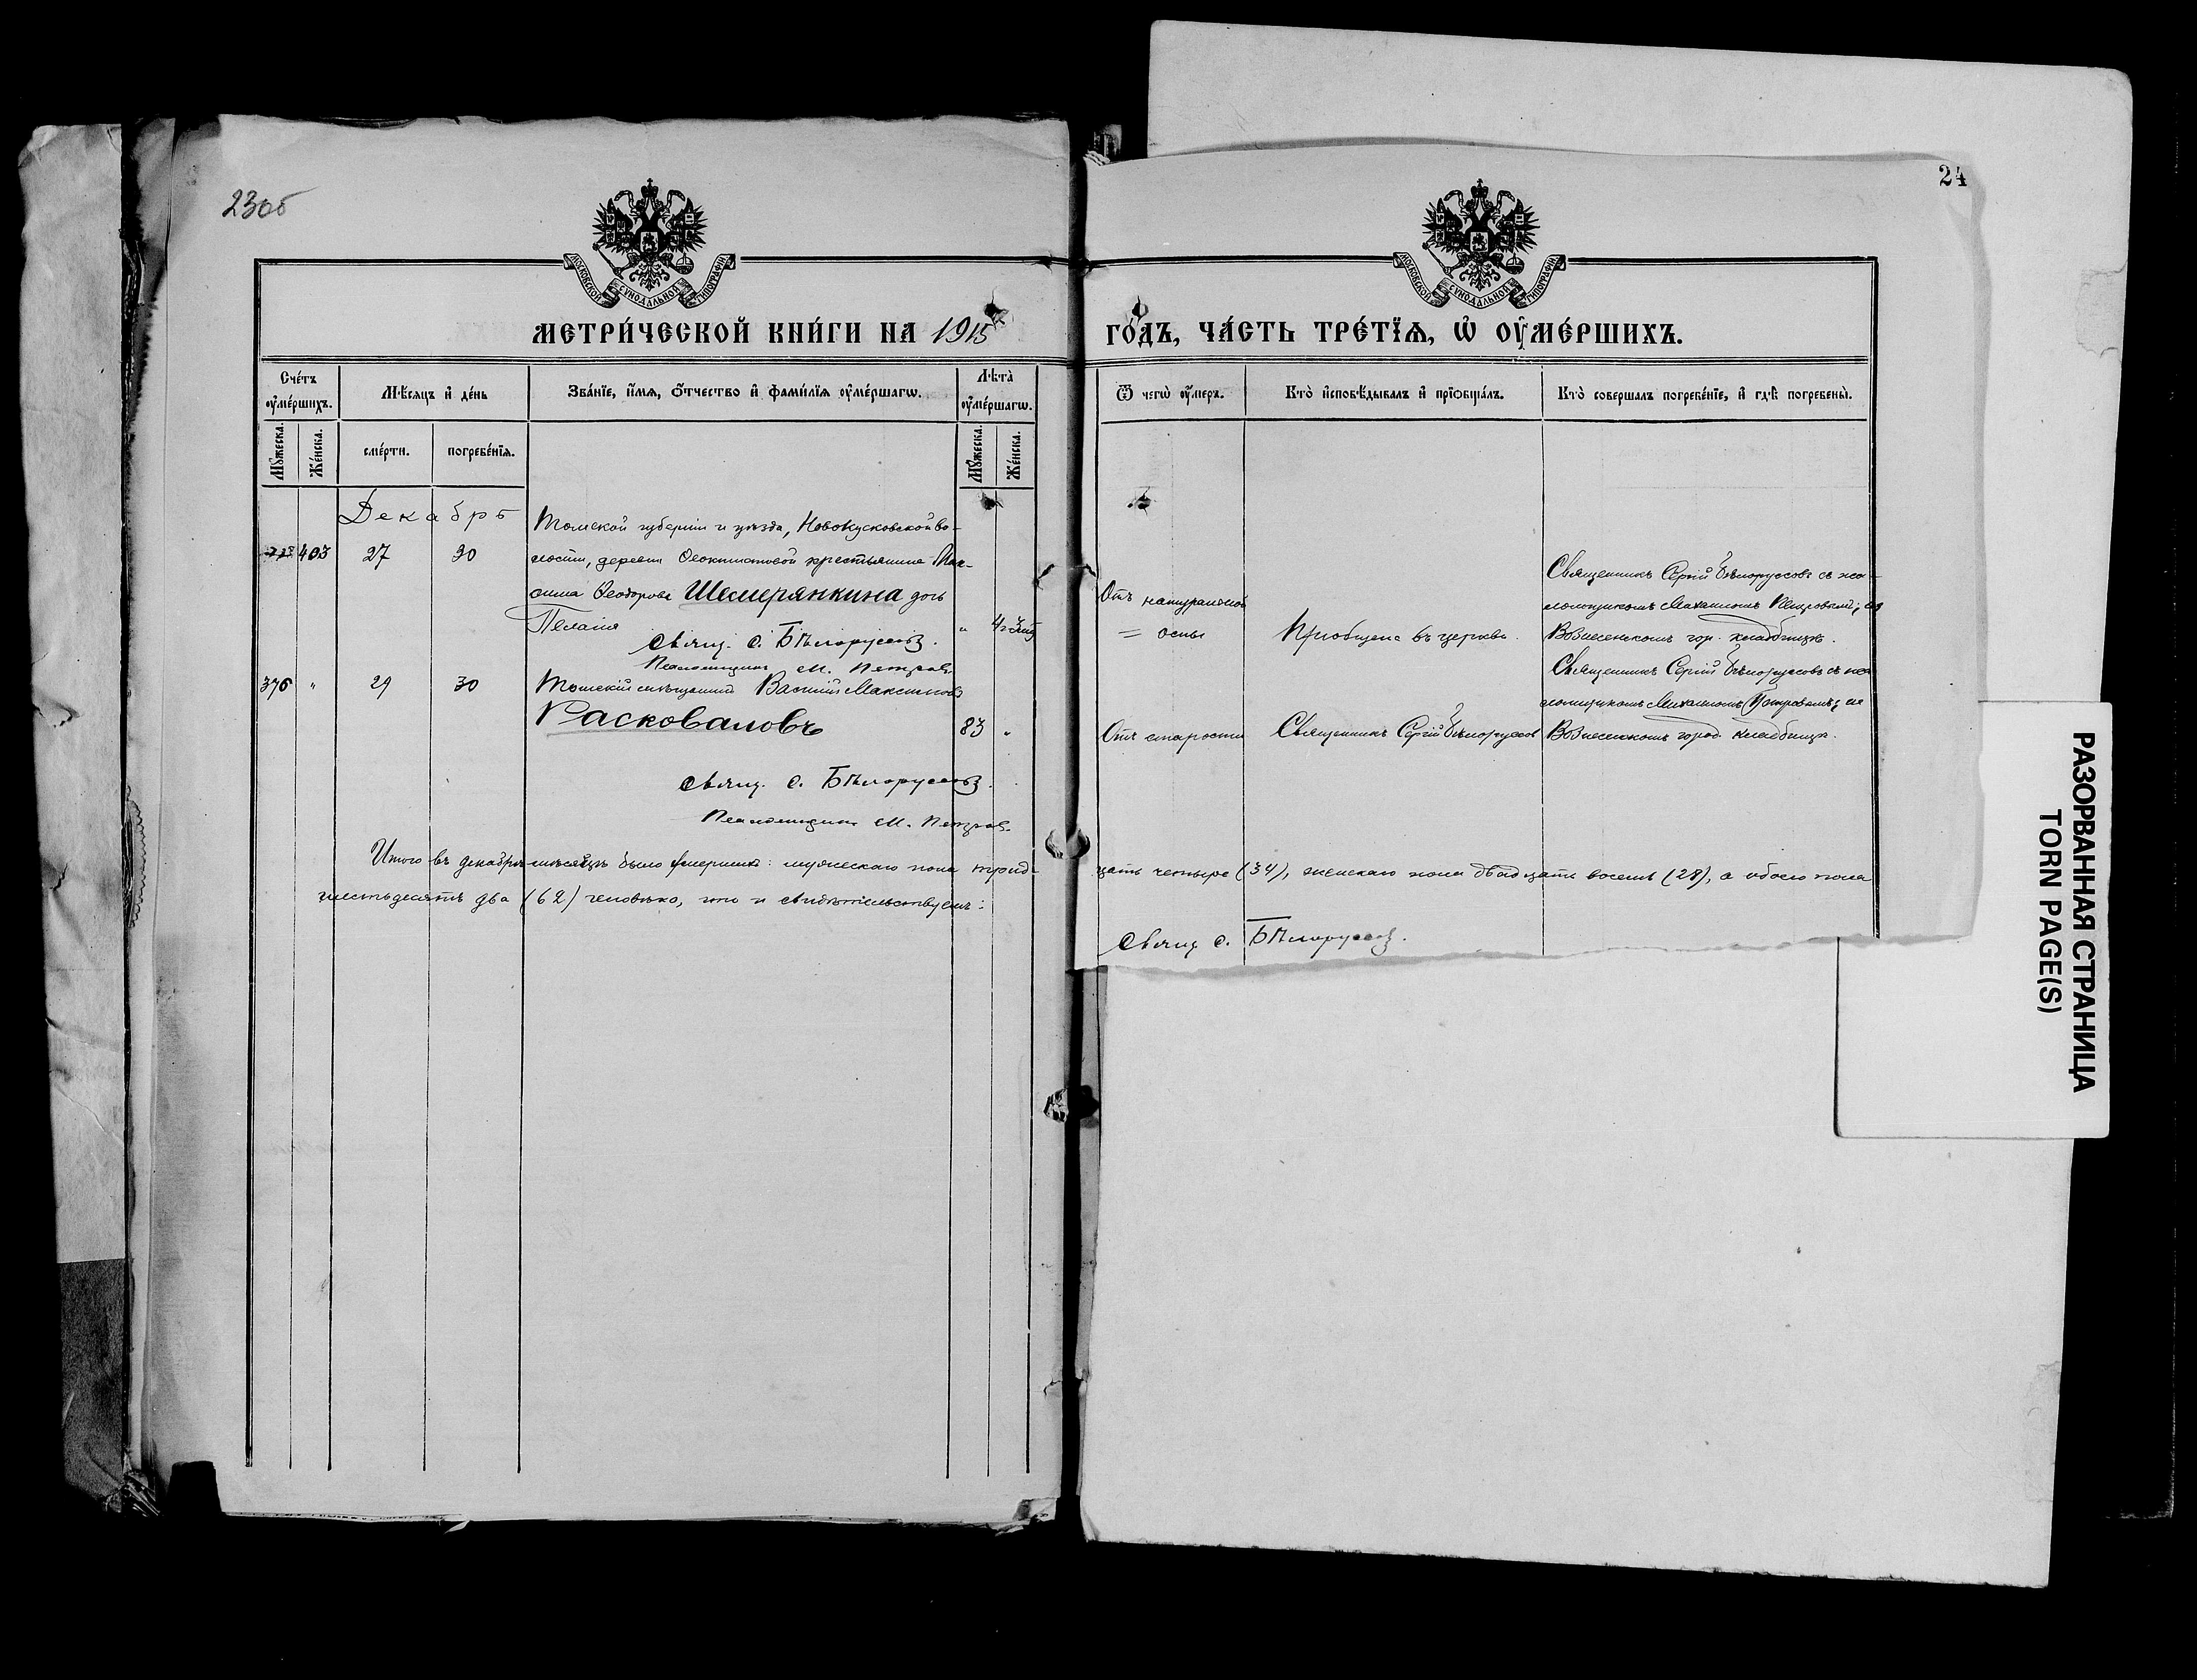 23об
24
МОСКОВСКОЙ СѴНОДАЛЬНОЙ ТИПОГРАФІИ
МОСКОВСКОЙ СѴНОДАЛЬНОЙ ТИПОГРАФІИ
МЕТРИ́ЧЕСКОЙ КНИ́ГИ НА 1915
ГО́ДЪ, ЧА́СТЬ ТРЕ́ТЇѦ, Ѡ҆ ОУ҆МЕ́РШИХЪ.
Сче́тъ оу҆ме́ршихъ.
Мѣ́сѧцъ и҆ де́нь
Зва́нїе, и҆́мѧ, ѻ҆́тчество и҆ фамі́лїѧ оу҆ме́ршагѡ.
Лѣ́та оу҆ме́ршагѡ.
Ѿ чегѡ̀ оу҆́меръ.
Кто̀ и҆сповѣ́дывалъ и҆ прїѻбща́лъ.
Кто̀ соверша́лъ погребе́нїе, и҆ гдѣ̀ погребены̀.
Мꙋ́жеска.
Же́нска.
сме́рти.
погребе́нїѧ.
Мꙋ́жеска.
Же́нска.
Декабрь
Томской губерніи и уѣзда, Новокусковской во-
403 27 30 лости, деревни Ѳеоктистовой крестьянина Мак-
сима Ѳеодорова Шемерянкина дочь
Пелагія
Свящ. С. Бѣлоруссовъ.
Псаломщикъ М. Петровъ.
Отъ натуральной
= оспы
Пріобщена въ церкви.
Священникъ Сергій Бѣлоруссовъ съ пса-
ломщикомъ Михаиломъ Петровымъ; на
Вознесенскомъ гор. кладбищѣ.
376 " 29 30 Томскій мѣщанинъ Василій Максимовъ
Расковаловъ 83 "
Отъ старости
Священникъ Сергій Бѣлоруссовъ
Священникъ Сергій Бѣлоруссовъ съ пса-
ломщикомъ Михаиломъ Петровымъ; на
Вознесенскомъ город. кладбищѣ.
Свящ. С. Бѣлоруссовъ.
Псаломщикъ М. Петровъ.
Итого въ декабрѣ мѣсяцѣ было умершихъ: мужескаго пола трид-
цать четыре (34), женскаго пола двадцать восемь (28), а обоего пола
шестьдесятъ два (62) человѣка, что и свидѣтельствуемъ:
Свящ. С. Бѣлоруссовъ.
РАЗОРВАННАЯ СТРАНИЦА
TORN PAGE(S)